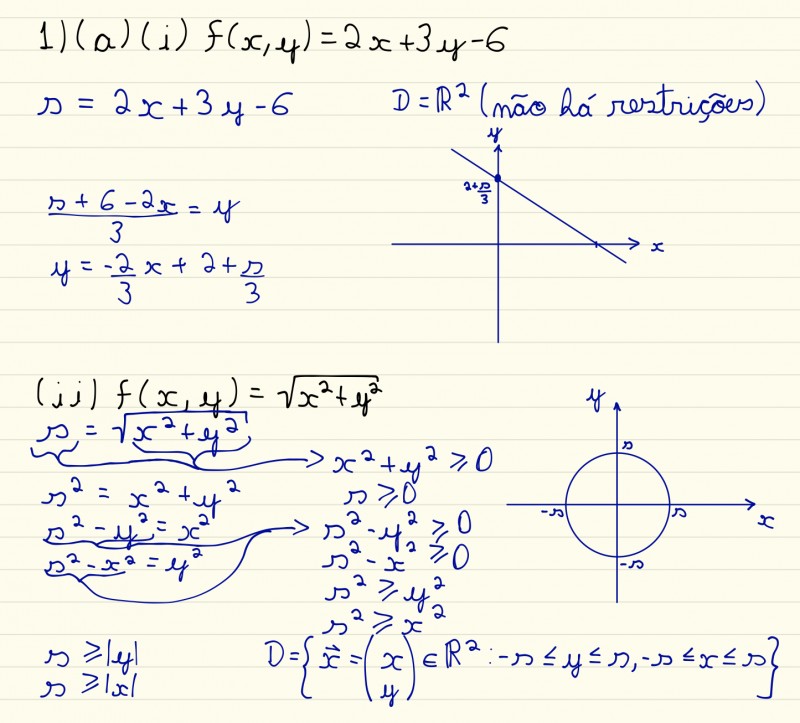 1)(a)(i) f(x,y)=2x+3y-6
s = 2x+3y-6
D=ℝ² (não há restrições)
y
2+s/3
x
(s+6-2x)/3 = y
y = -2/3 x + 2 + s/3
(ii) f(x,y) = √(x²+y²)
s = √(x²+y²)
x²+y² ≥ 0
s² = x²+y²
s ≥ 0
s²-y² = x²
s²-y² ≥ 0
s²-x² = y²
s²-x² ≥ 0
s² ≥ y²
s² ≥ x²
y
s
-s
s
x
-s
s ≥ |y|
s ≥ |x|
D={x⃗ = (x y) ∈ ℝ² : -s ≤ y ≤ s, -s ≤ x ≤ s}